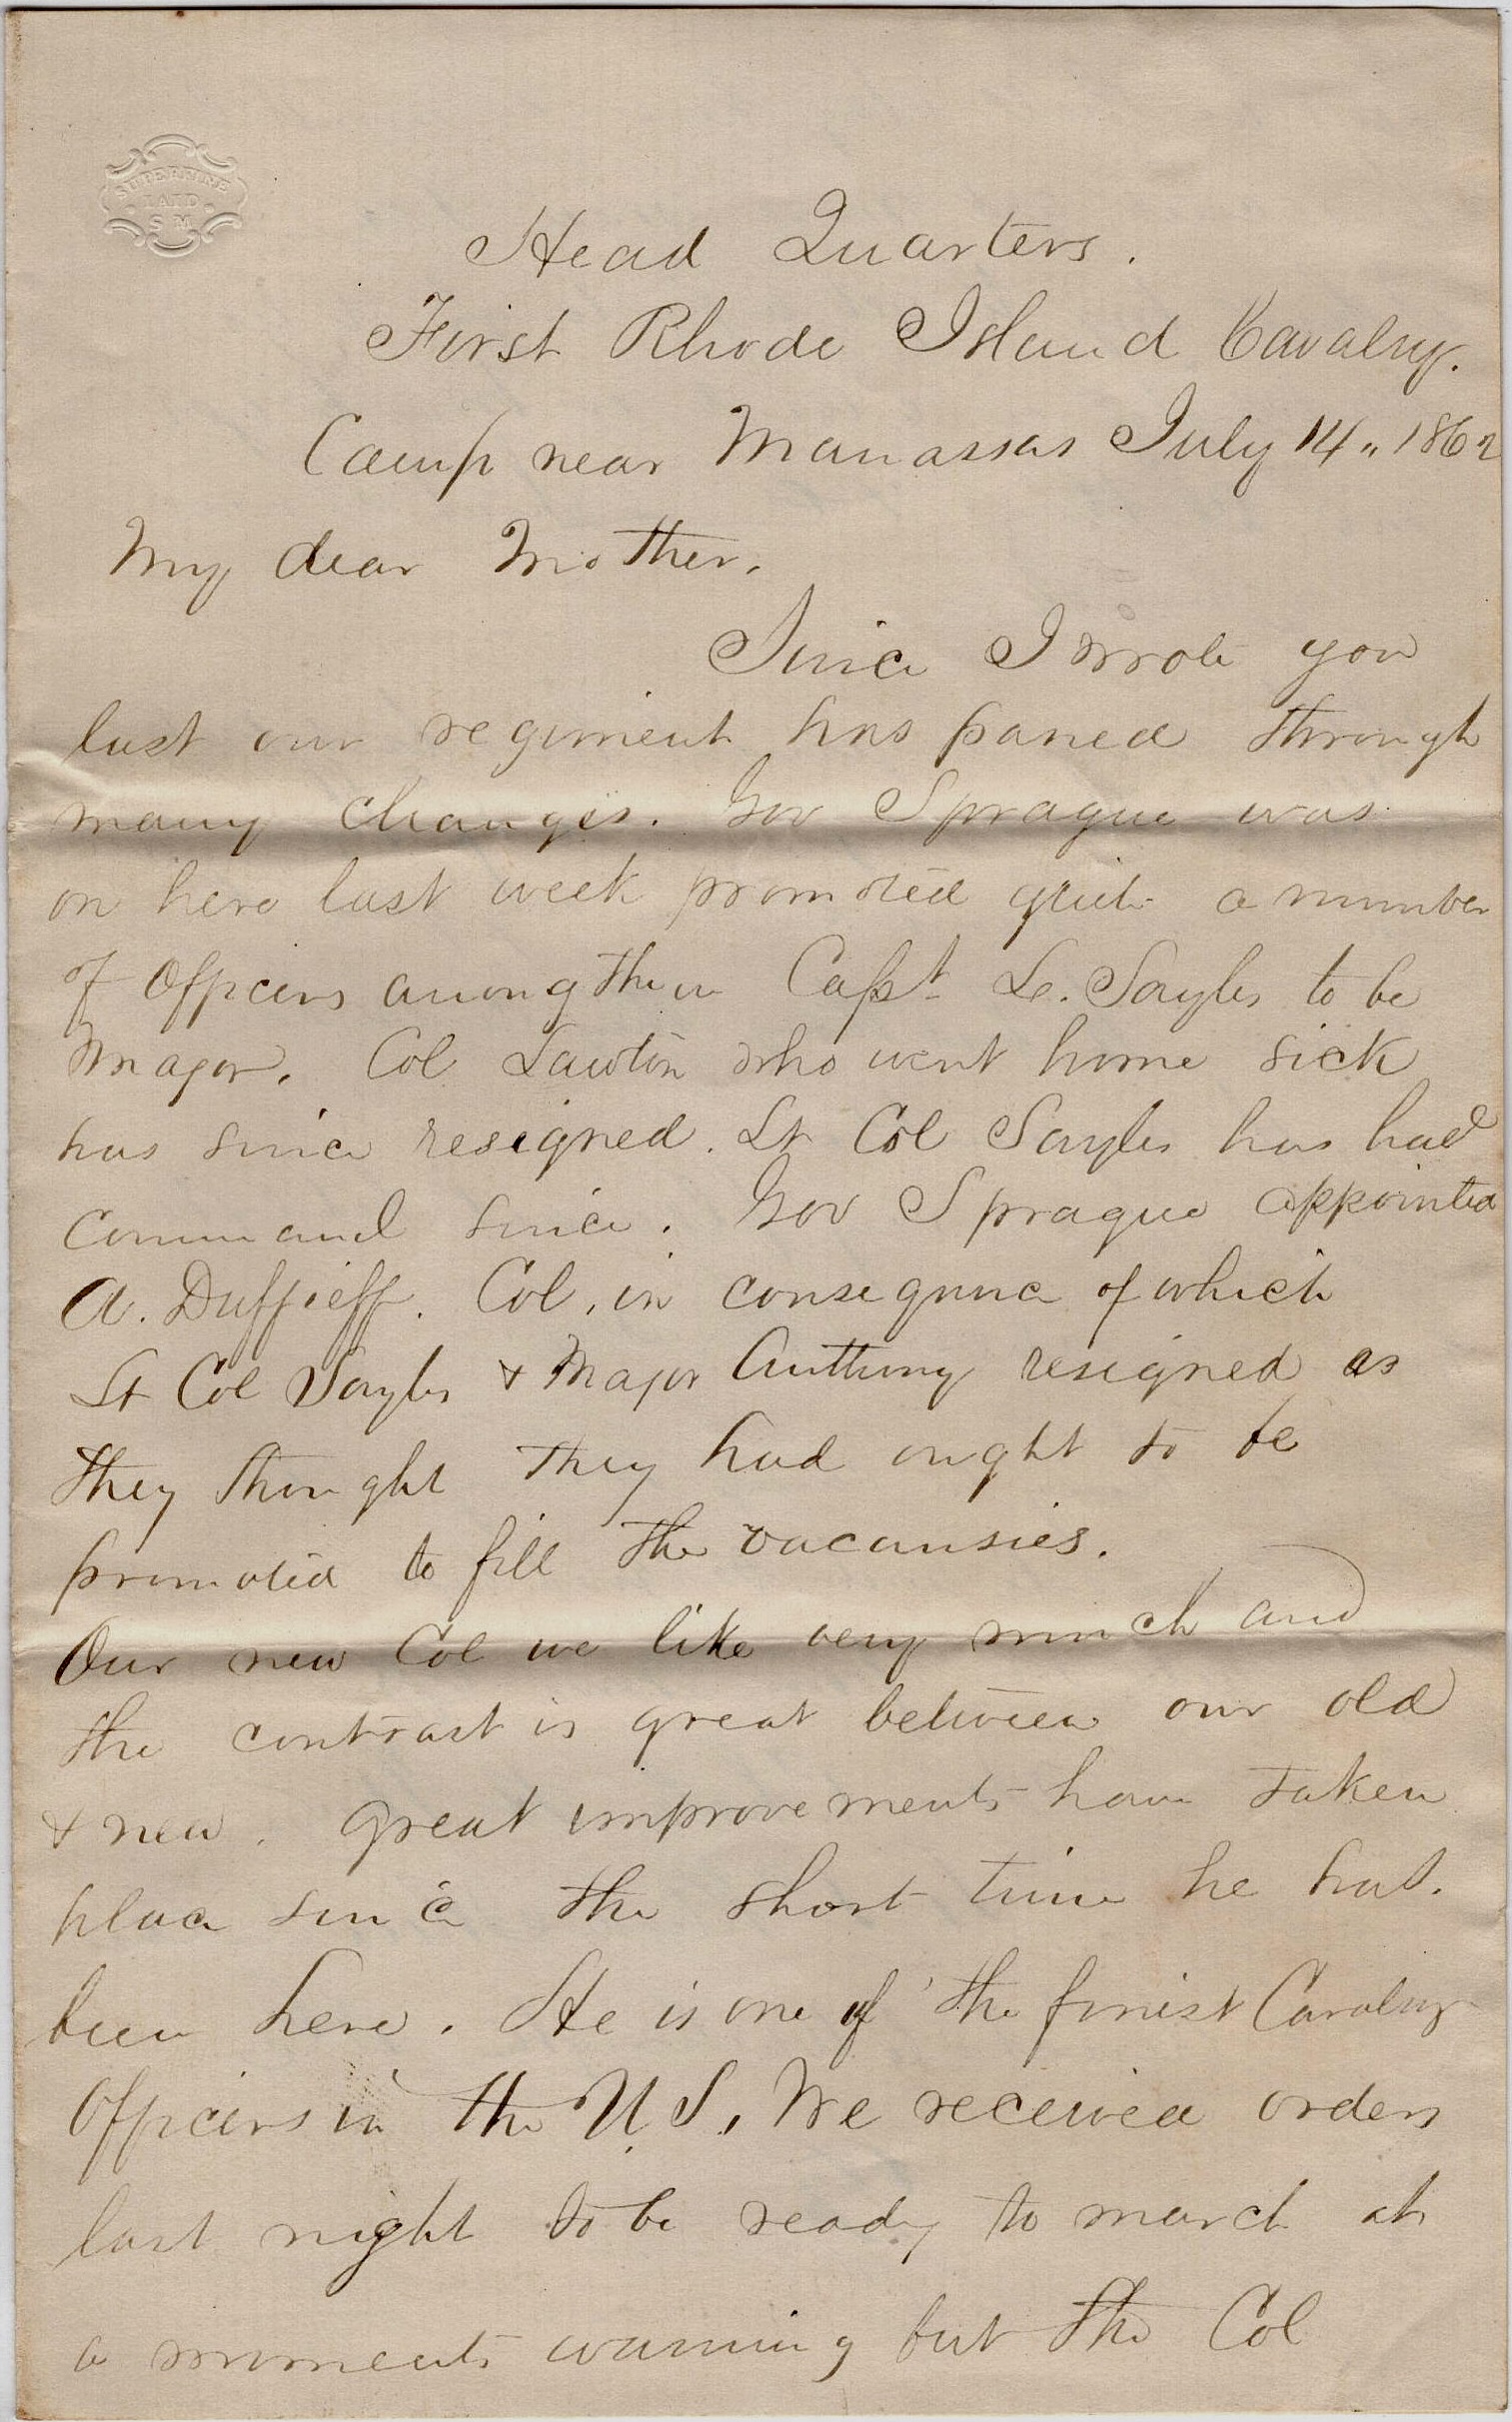 SUPERFINE
LAID
S M
Head Quarters.
First Rhode Island Cavalry.
Camp near Manassas July 14,, 1862
My dear Mother.
Since I wrote you
last our regiment has passed through
many changes. Gov Sprague was
on here last week promoted quite a number
of Officers among them Capt L. Sayles to be
Major. Col Lawton who went home sick
has since resigned. Lt Col Sayles has had
command since. Gov Sprague appointed
A. Duffieff. Col, in consequence of which
Lt Col Sayles & Major Anthony resigned as
they thought they had ought to be
promoted to fill the vacansies.
Our new Col we like very much and
the contrast is great between our old
& new. great improvements have taken
place since the short time he has.
been here. He is one of the finest Cavalry
Officers in the U.S. We received orders
last night to be ready to march at
a moments warning but the Col